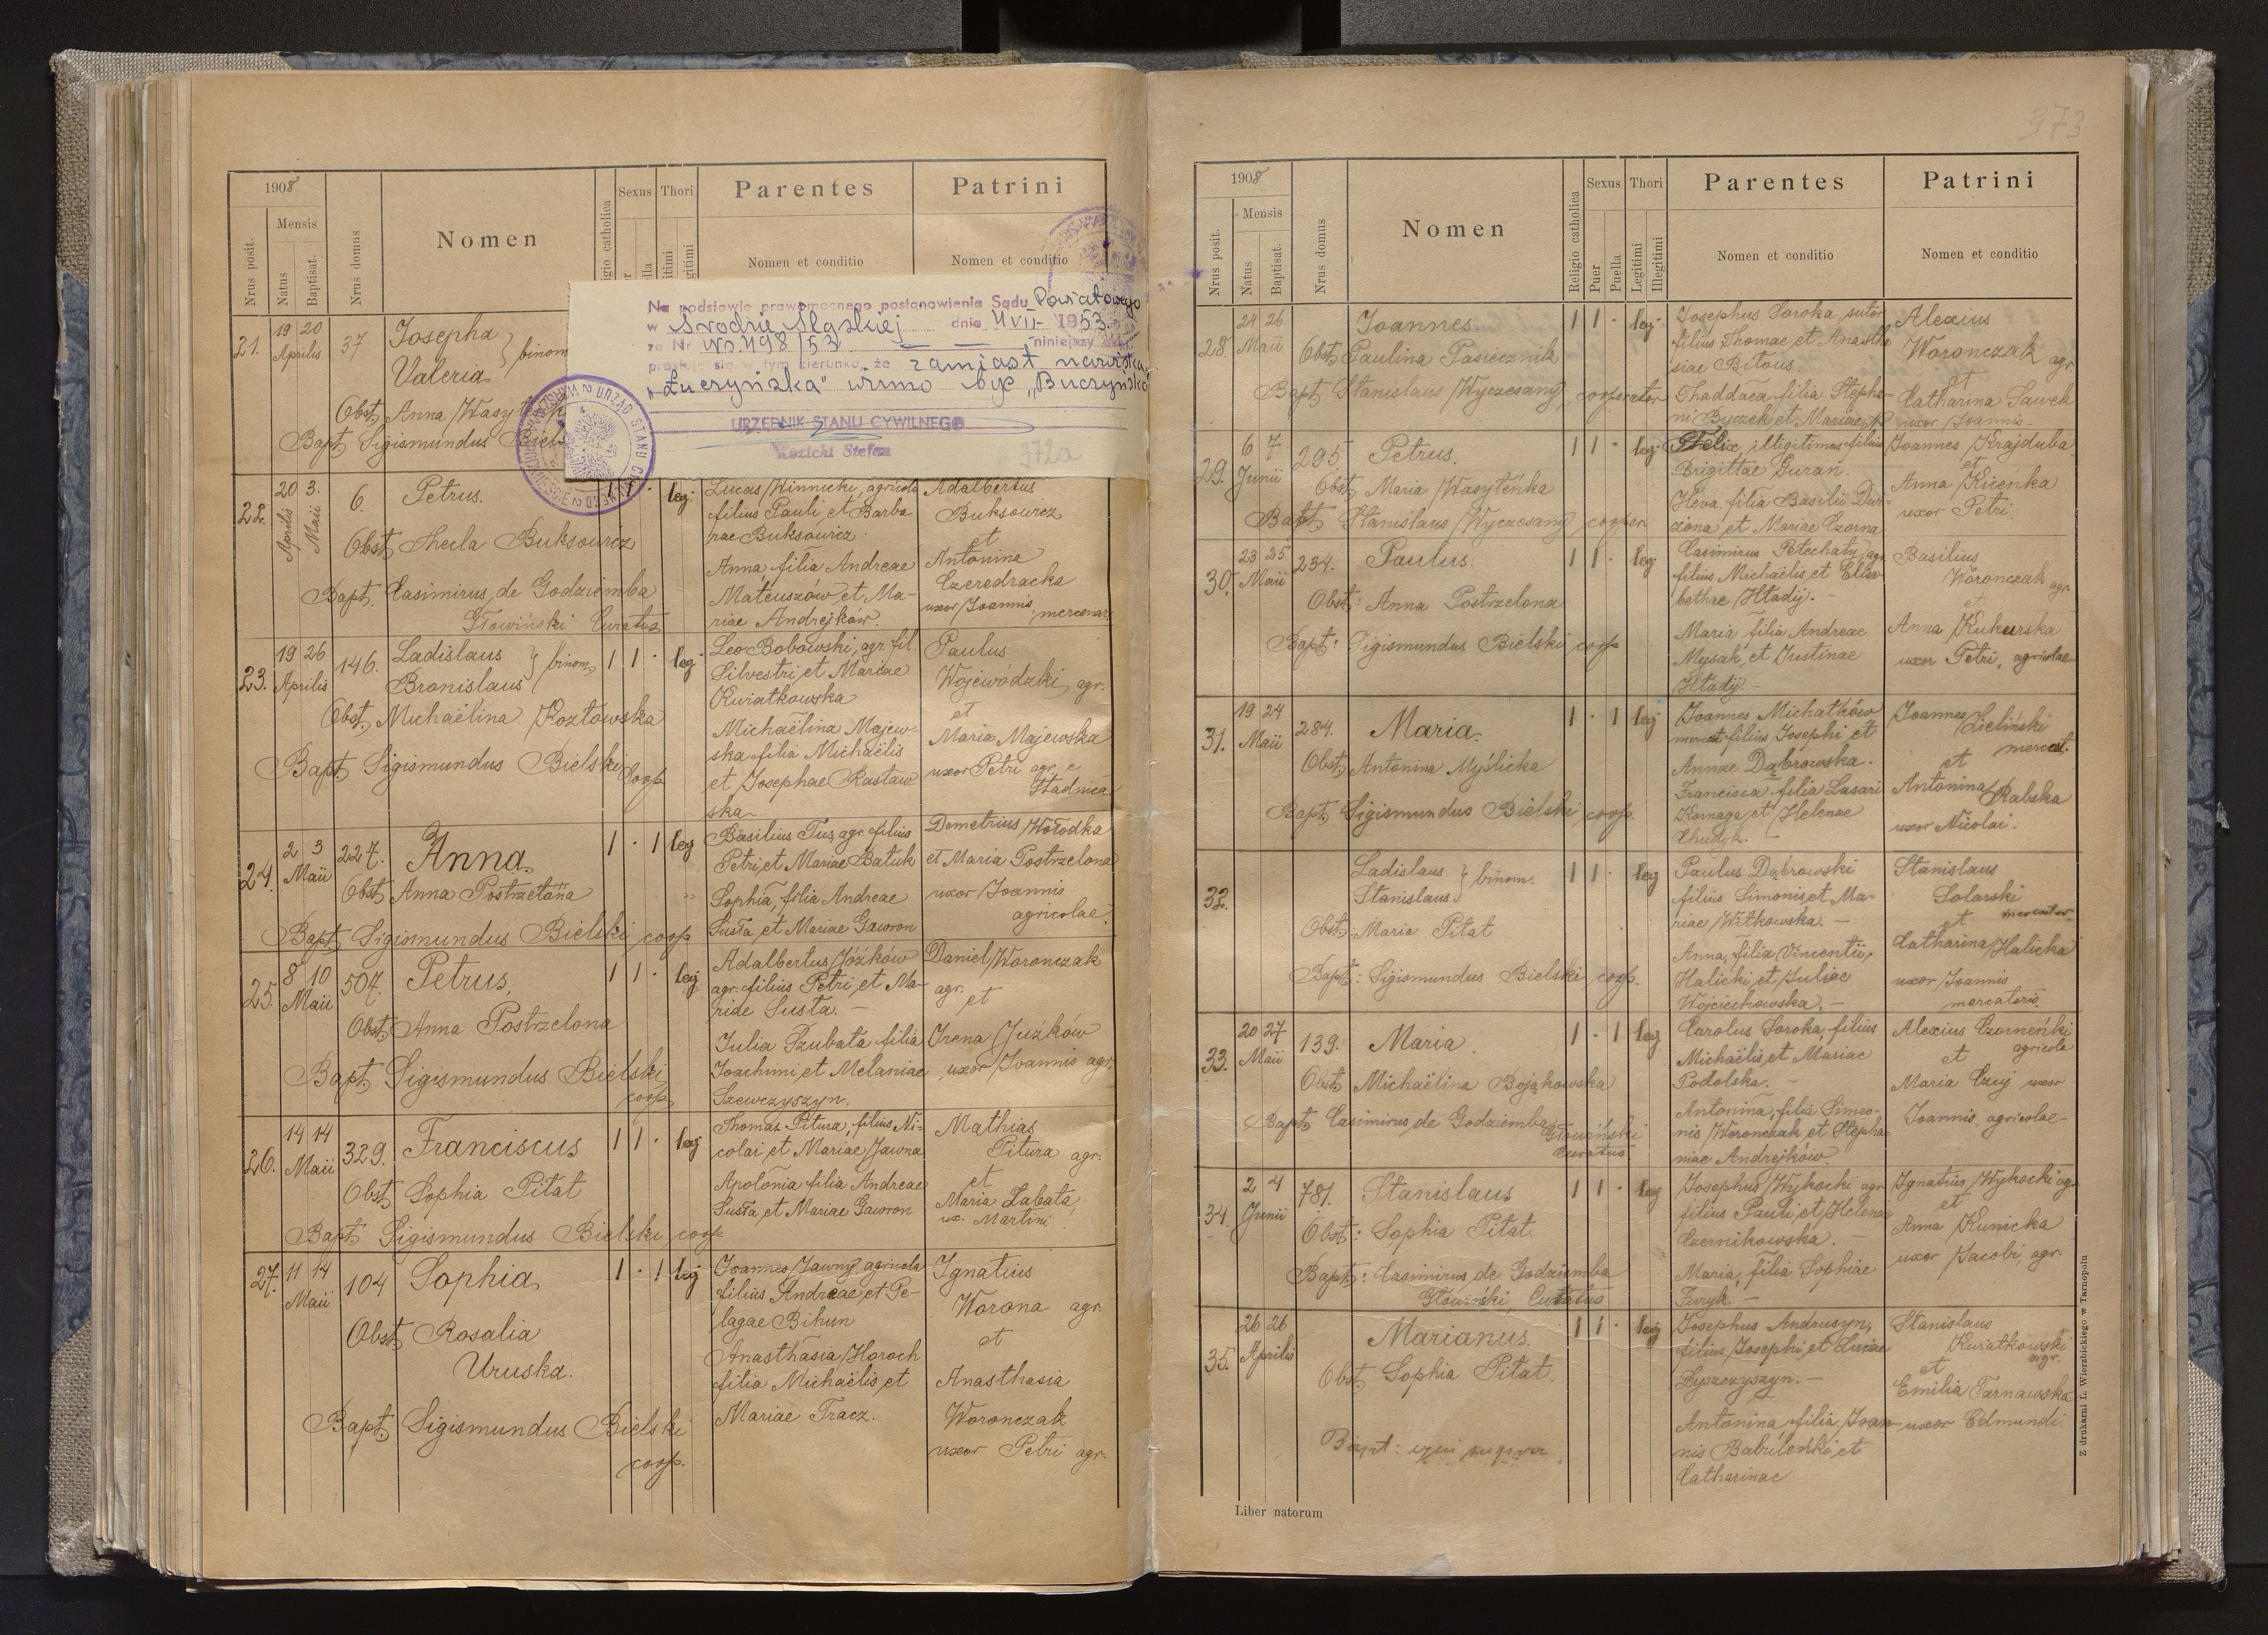 1908
Mensis
Nrus posit.
Natus
Baptisat.
Nrus domus
Nomen
Sexus
Thori
Parentes
Nomen et conditio
Patrini
Nomen et conditio
Na podstawie prawomocnego postanowienia Sądu Powiatowego
w Środzie Śląskiej dnia 4 VII - 1953.
za Nr No. 498/53 — — niniejszy akt
prostuje się w tym kierunku, że zamiast nazwiska
"Łuczyńska" winno być "Buczyńska"
URZĘDNIK STANU CYWILNEGO
Kozicki Stefan
372a
21.
19 20
Aprilis
37
Josepha
Valeria } binom
Obst. Anna Wasyleńk
Bapt. Sigismundus Biels
22.
20 3.
Aprilis Maii
6.
Petrus.
1 1 · leg.
Obst. Thecla Buksowicz
Bapt. Casimirus de Godziemba
Głowiński Curatus
Lucas Winnicki, agricola
filius Pauli et Barba
rae Buksowicz
Anna filia Andreae
Mateuszów et Ma-
riae Andrejków.
Adalbertus
Buksowicz
et
Antonina
Czeredracka
uxor Joannis mercenar.
23.
19 26
Aprilis
146.
Ladislaus
Bronislaus } binom.
1 1 · leg
Obst. Michaëlina Kozłowska
Bapt. Sigismundus Bielski
Coop.
Leo Bobowski, agr. fil.
Silvestri et Mariae
Kwiatkowska
Michaëlina Majew-
ska filia Michaëlis
et Josephae Rastaw
ska
Paulus
Wojewódzki agr.
et
Maria Majewska
uxor Petri agr. e
Hadnica
24.
2 3
Maii
227.
Anna.
1 · 1 leg
Obst. Anna Postrzelana
Bapt. Sigismundus Bielski coop
Basilius Tus, agr. filius
Petri et Mariae Batuk
Sophia, filia Andreae
Susła et Mariae Gawron
Demetrius Wołodka
et Maria Postrzelona
uxor Joannis
agricolae.
25.
8 10
Maii
507.
Petrus.
1 1 · leg
Obst. Anna Postrzelona
Bapt. Sigismundus Bielski,
coop.
Adalbertus Józków
agr. filius Petri, et Ma-
riae Susta. —
Julia Szubata filia
Joachimi, et Melaniae
Szewczyszyn.
Daniel Woronczak
agr. et
Irena Juzków
uxor Joannis agr.
26.
14 14
Maii
329.
Franciscus
1 1 · leg
Obst. Sophia Pitat
Bapt. Sigismundus Bielski coop
Thomas Pitura, filius Ni-
colai et Mariae Jawna
Apolonia filia Andreae
Susła et Mariae Gawron
Mathias
Pitura agr.
et
Maria Labata
ux. Martini
27.
11 14
Maii
104
Sophia
1 · 1 leg
Obst. Rosalia
Uruska.
Bapt. Sigismundus Bielski
coop.
Joannes Jawny, agricola
filius Andreae et Pe-
lagae Bihun
Anasthasia Horoch
filia Michaëlis, et
Mariae Tracz.
Ignatius
Worona agr.
et
Anasthasia
Woronczak
uxor Petri agr.
373
1908
Mensis
Nrus posit.
Natus
Baptisat.
Nrus domus
Nomen
Religio catholica
Sexus
Puer
Puella
Thori
Legitimi
Illegitimi
Parentes
Nomen et conditio
Patrini
Nomen et conditio
28.
24 26
Maii
Joannes.
1 1 · leg.
Obst. Paulina Pasiecznik
Bapt. Stanislaus Wyczesany, cooperator
Josephus Soroka, sutor
filius Thomae et Anastha
siae Bitous.
Thaddaea filia Stepha-
ni Byczek et Mariae
Alexius
Woronczak agr.
et
Catharina Sawek
uxor Joannis.
29.
6 7
Junii
295
Petrus.
1 1 · leg
Obst. Maria Wasyleńka
Bapt. Stanislaus Wyczesany cooper
Felix, illigitimus filius
Brigittae Guran.
Heva, filia Basilii Dur-
ziona, et Mariae Czorna
Joannes Krajduba
et
Anna Kicenka
uxor Petri
30.
23 25
Maii
234.
Paulus.
1 1 · leg
Obst: Anna Postrzelona
Bapt: Sigismundus Bielski coop
Casimirus Petechaty, agr.
filius Michaëlis, et Elisa-
bethae Hładij. —
Maria filia Andreae
Mysak, et Justinae
Hładij. —
Basilius
Woronczak agr.
et
Anna Kukurska
uxor Petri, agricolae
31.
19 24
Maii
284.
Maria.
1 · 1 leg
Obst. Antonina Myślicka
Bapt. Sigismundus Bielski coop.
Joannes Michałków
mercat. filius Josephi et
Annae Dąbrowska.
Francisca filia Lasari
Komaga, et Helenae
Chudyk.
Joannes Zieliński
mercat.
et
Antonina Rabska
uxor Nicolai.
32.
Ladislaus
Stanislaus } binom.
1 1 · leg
Obst. Maria Pitat
Bapt: Sigismundus Bielski coop.
Paulus Dąbrowski
filius Simonis, et Ma-
riae Witkowska. —
Anna, filia Vincentii
Halicki, et Juliae
Wojciechowska. —
Stanislaus
Solarski
et mercator
Catharina Halicka
uxor Joannis
mercatoris.
33.
20 27
Maii
139.
Maria.
1 · 1 leg
Obst. Michaëlina Bojakowska
Bapt. Casimirus de Godziemba
Głowiński
Curatus
Carolus Soroka, filius
Michaëlis, et Mariae
Podolska. —
Antonina, filia Simeo-
nis Woronczak, et Stepha-
niae Andrejków.
Alexius Czorneńki
et agricola
Maria Czuj uxor
Joannis, agricolae
34.
2 4
Junii
781.
Stanislaus
1 1 · leg
Obst: Sophia Pitat.
Bapt: Casimirus de Godziemba
Głowiński, Curatus
Josephus Wykocki agr.
filius Pauli, et Helenae
Czernikowska. —
Maria, filia Sophiae
Furyk. —
Ignatius Wykocki agr.
et
Anna Kunicka
uxor Jacobi, agr.
35.
26 26
Aprilis
Marianus.
1 1 · leg
Obst. Sophia Pitat.
Bapt:
Josephus Andrusyn,
filius Josephi, et Luciae
Łyszczyszyn. —
Antonina, filia Joan-
nis Babileńki, et
Catharinae
Stanislaus
Kwiatkowski
et agr.
Emilia Tarnawska
uxor Edmundi.
Liber natorum
Z drukarni L. Wierzbickiego w Tarnopolu